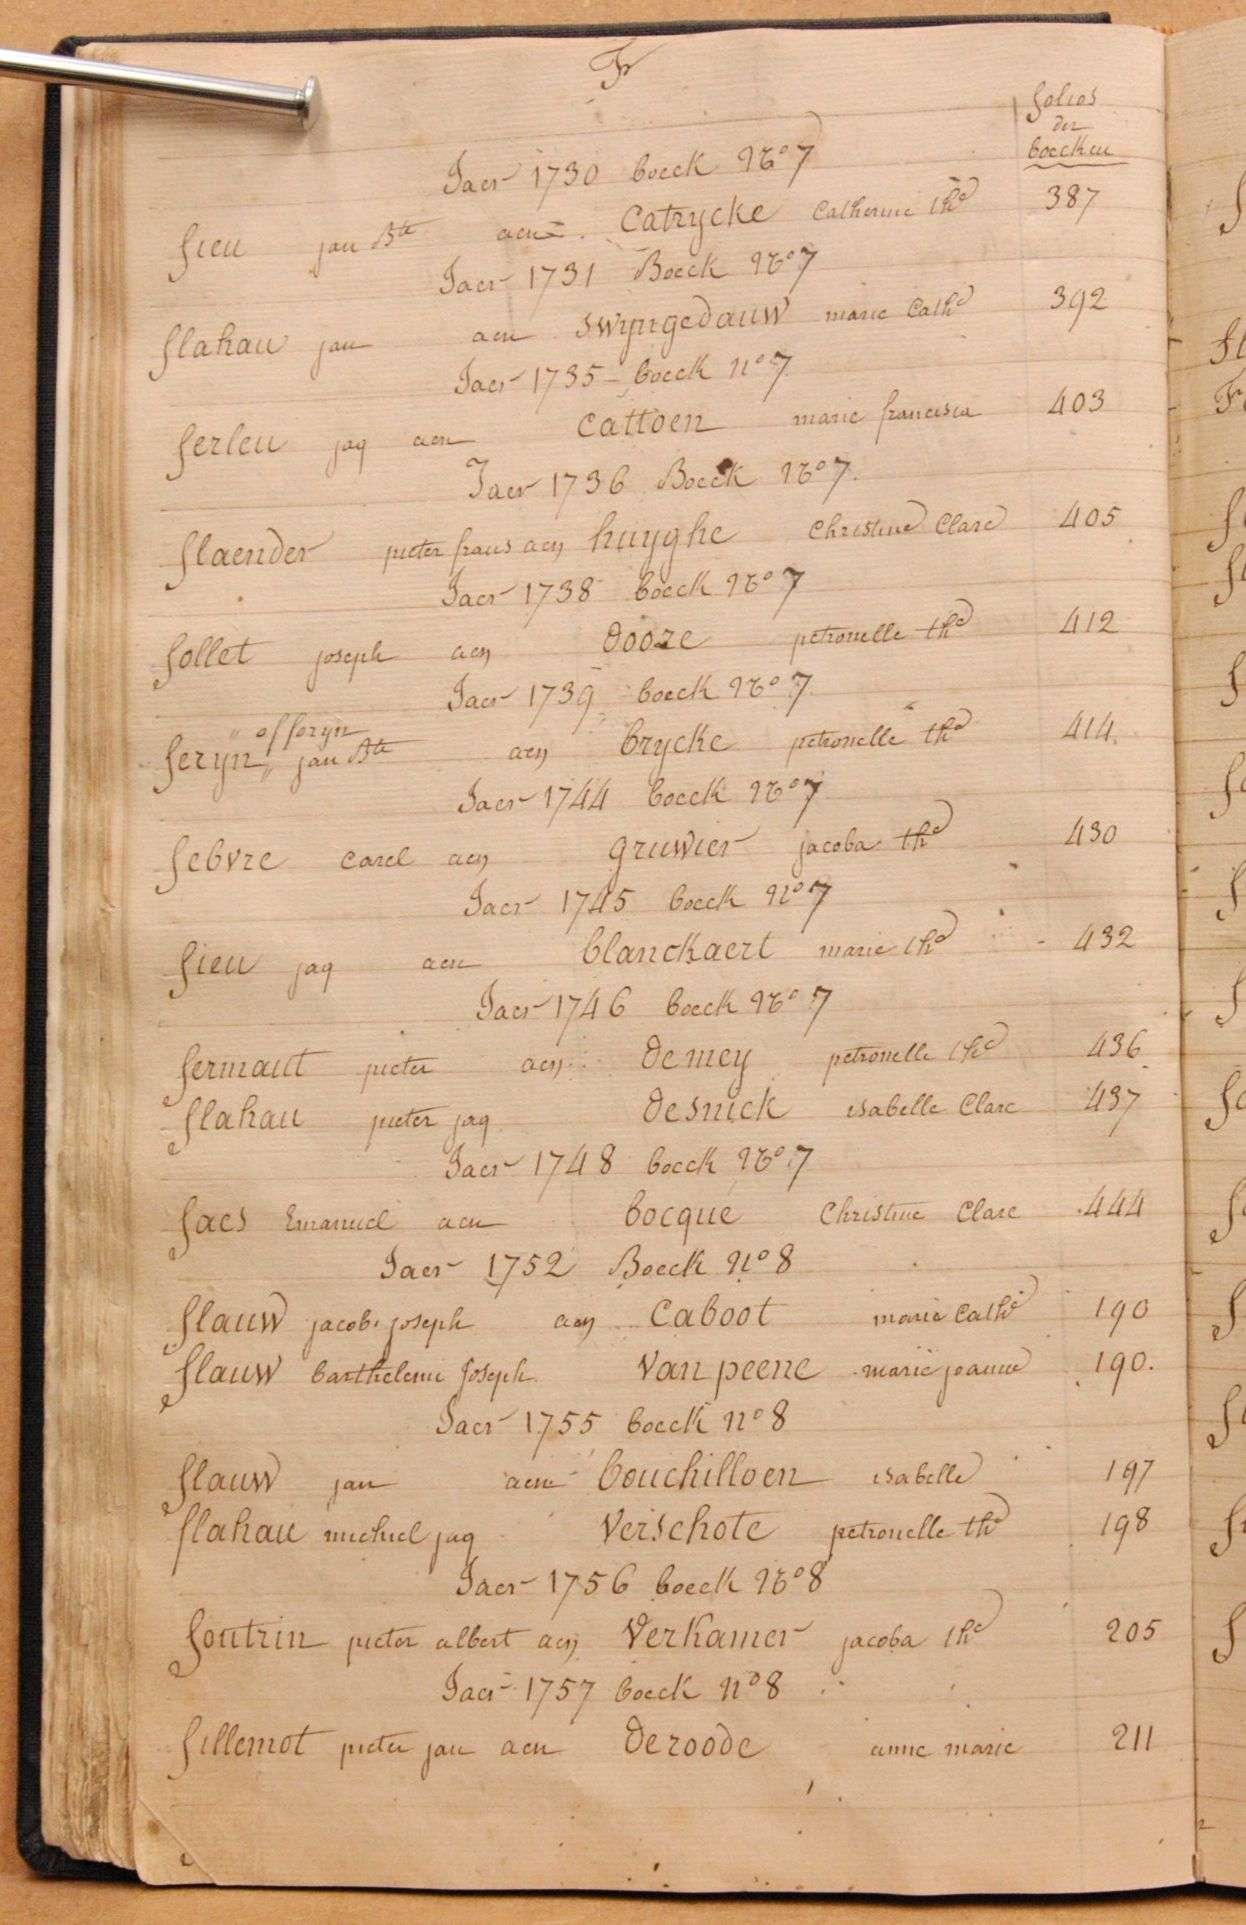 F
folios
der
boecken
Jaer 1730 boeck No 7
fieu jan Bte aen Catrycke Catherine the 387
Jaer 1731 Boeck No 7
flahau jan aen Swyngedauw marie Cathe 392
Jaer 1735 - boeck no 7
ferleu jaq aen Cattoen marie francisca 403
Jaer 1736 Boeck No 7.
flaender pieter frans aen huyghe Christine Clare 405
Jaer 1738 boeck No 7
follet joseph aen Dooze petronelle the 412
Jaer 1739 boeck No 7
" of foryn
feryn " jan Bte aen brycke petronelle the 414.
Jaer 1744 boeck No 7
febvre Carel aen gruwier jacoba the 430
Jaer 1745 boeck No 7
fieu jaq aen blanckaert marie the 432
Jaer 1746 boeck No 7
fermaut pieter aen Demey petronelle the 436
flahau pieter jaq Desnick isabelle Clare 437
Jaer 1748 boeck No 7
faes Emanuel aen bocque Christine Clare 444
Jaer 1752 Boeck No 8
flauw jacob. joseph aen Caboot marie Cathe 190
flauw barthelemi Joseph Van peene marie joanne 190.
Jaer 1755 boeck no 8
flauw jan aen bouchilloen isabelle 197
flahau michiel jaq Verschote petronelle the 198
Jaer 1756 boeck No 8
foutrin pieter albert aen Verkamer jacoba the 205
Jaer 1757 boeck no 8
fillemot pieter jan aen Deroode anne marie 211